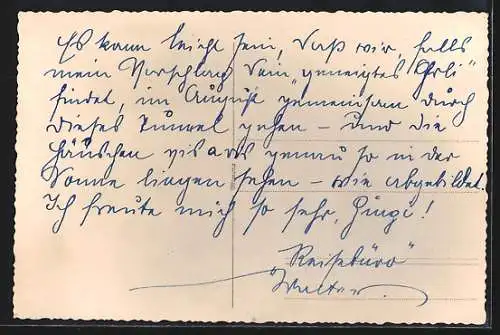 Es kann leicht sein, daß wir, falls
mein Vorschlag Dein "geneigtes Öhrli"
findet, im August gemeinsam durch
dieses Tunnel gehen – und die
Häuschen vis a vis genau so in der
Sonne liegen sehen – wie abgebildet.
Ich freute mich so sehr, !
"Reisebüro"
Walter.